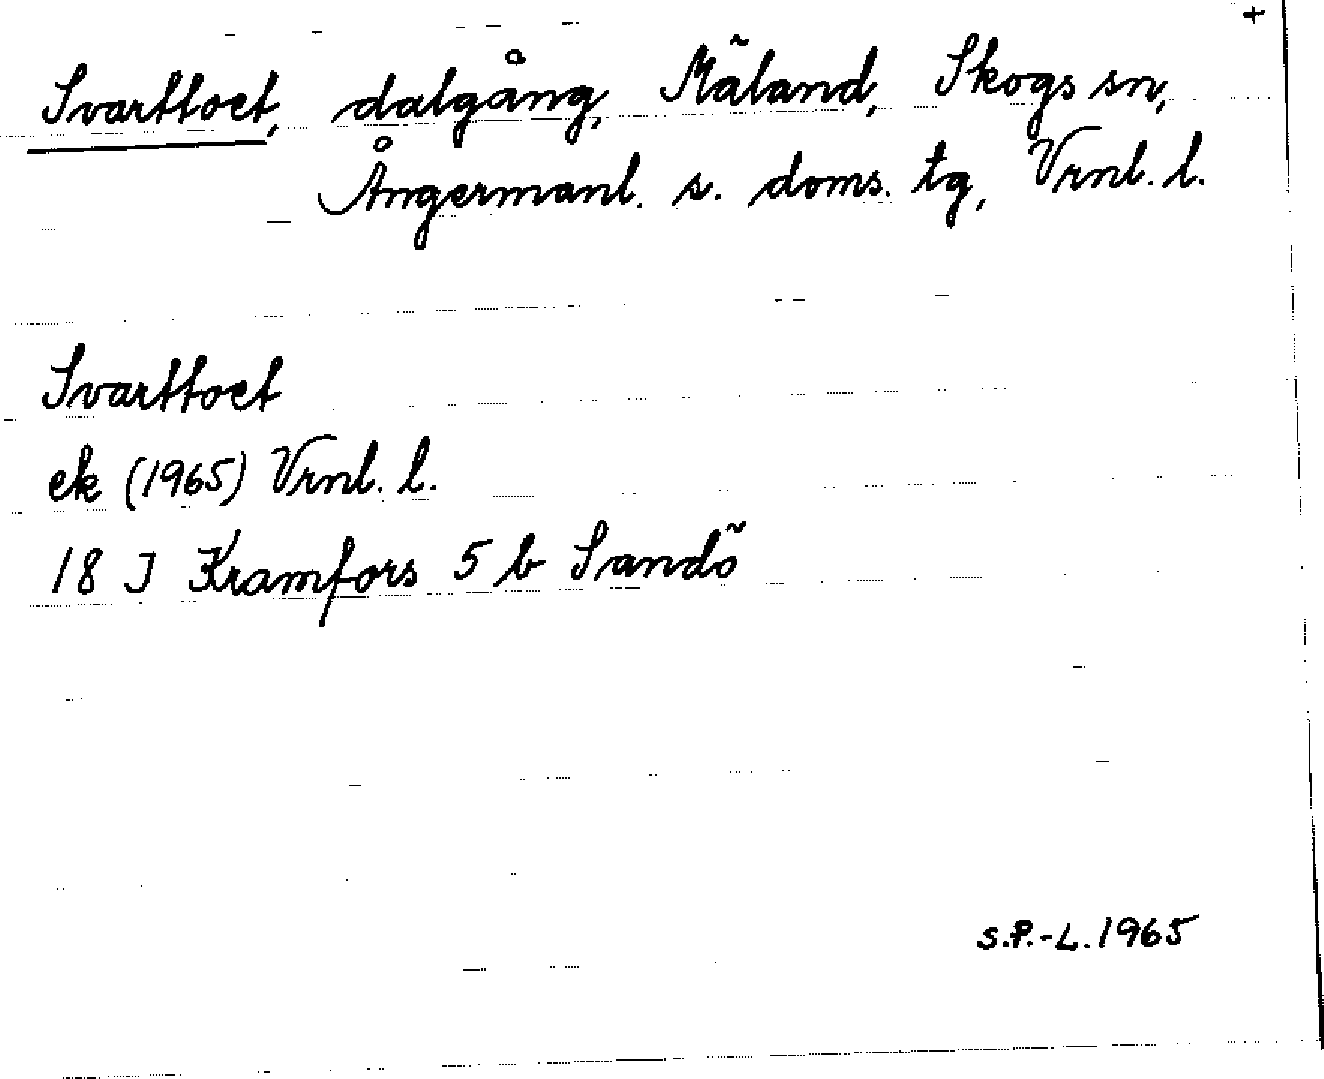 +
Svarttoet, dalgång, Mäland, Skogs sn,
Ångermanl. s. doms. tg, Vrnl. l.
Svarttoet
ek (1965) Vrnl. l.
18 J Kramfors 5 b Sandö
S.P.-L. 1965